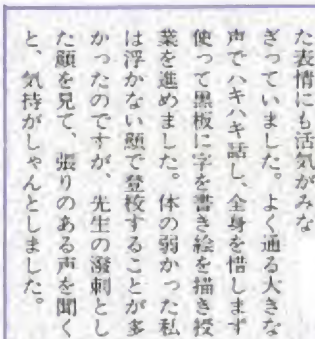 た表情にも活気がみな
ぎっていました。よく通る大きな
声でハキハキ話し、全身を惜しまず
使って黒板に字を書き絵を描き授
業を進めました。体の弱かった私
は浮かない顔で登校することが多
かったのですが、先生の潑剌とし
た顔を見て、張りのある声を聞く
と、気持がしゃんとしました。